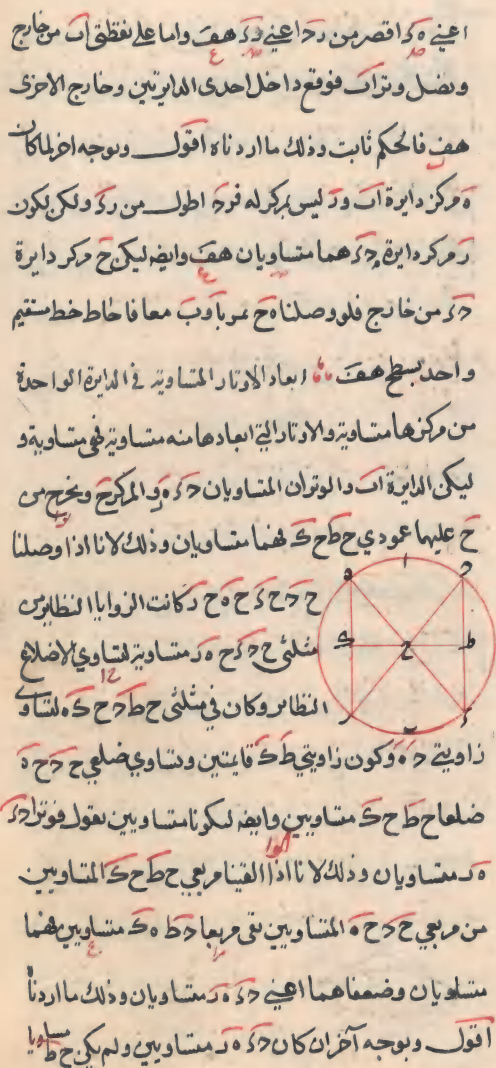 اعني ه ر اقصر من ر ح اعني ح ر هف واما على نقطتي ا ب من خارج
ونصل وتر ا ب فوقع داخل احدى الدايرتين وخارج الاخرى
هف فالحكم ثابت وذلك ما اردناه اقول وبوجه اخر لما كان
ه مركز دايرة ا ب و ر ليس بمركز له فر ح اطول من ر ء ولكن لكون
ر مركز دايرة ح ء هما متساويان هف وايضه ليكن ح مركز دايرة
ح ء من خارج فلو وصلنا ه ح لمر با و ب معا فاحاط خط مستقيم
واحد بسطح هف ابعاد الاوتار المتساوية في الدايرة الواحدة
من مركزها متساوية والاوتار التي ابعادها منه متساوية فهي متساوية و
ليكن الدايرة ا ب والوتران المتساويان ح ء ه ر والمركز ح ونخرج من
ح عليهما عمودي ح ط ح ك فهما متساويان وذلك لانا اذا وصلنا
ح ح ح ء ح ه ح ر كانت الزوايا النظاير من
مثلثي ح ح ء ح ه ر متساوية لتساوي الاضلاع
النظاير وكان في مثلثي ح ط ح ح ك ه لتساوي
زاويتي ح ه وكون زاويتي ط ك قايمتين وتساوي ضلعي ح ح ح ه
ضلعا ح ط ح ك متساويين وايضه ليكونا متساويين نقول فوترا ح ء
ه ر متساويان وذلك لانا اذا القينا مربعي ح ط ح ك المتساويين
من مربعي ح ح ح ه المتساويين بقى مربعا ح ط ه ك متساويين فهما
متساويان وضعفاهما اعني ح ء ه ر متساويان وذلك ما اردناه
اقول وبوجه آخر ان كان ح ء ه ر متساويين ولم يكن ح ط مساويا
ا
ه
ح
ك
ح
ط
ر
ب
ء